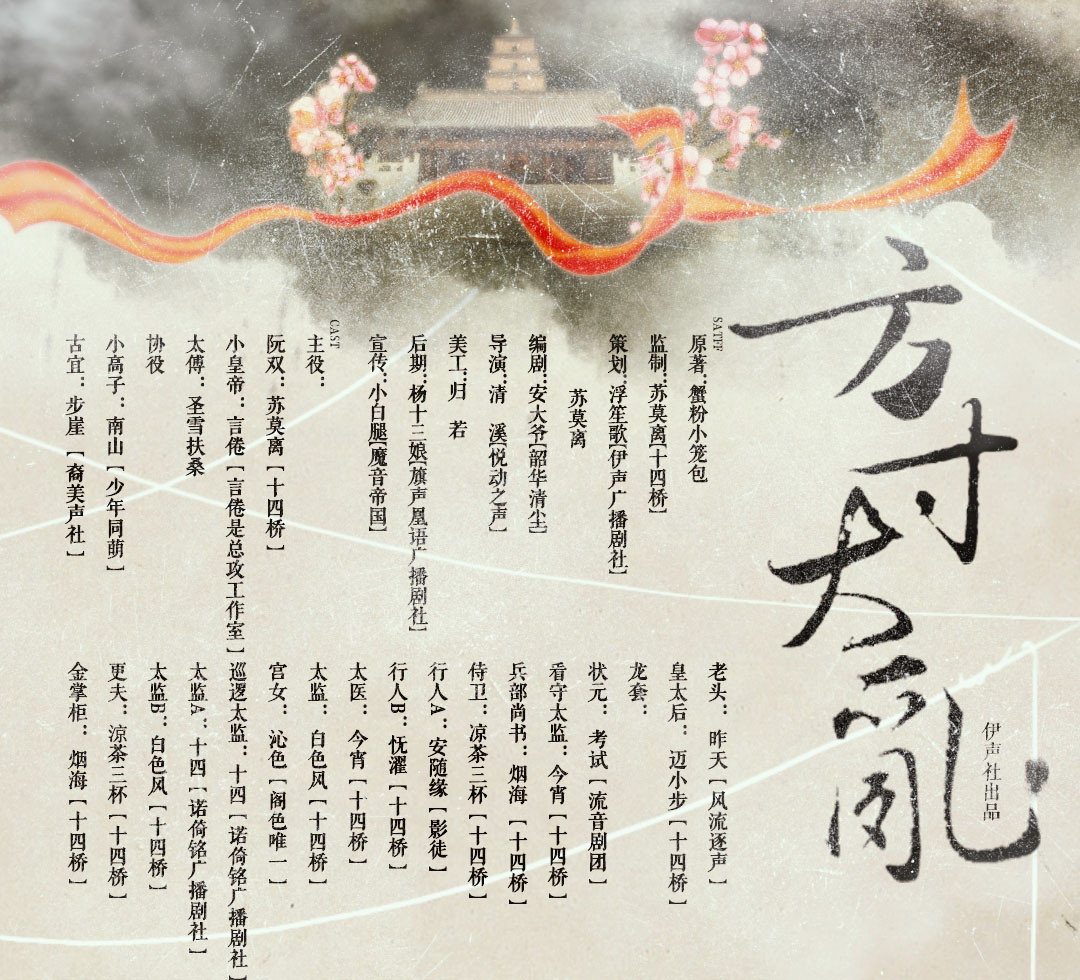 方寸大亂
伊声社出品
SATFF
原著：蟹粉小笼包
监制：苏莫离[十四桥]
策划：浮笙歌[伊声广播剧社]
苏莫离
编剧：安大爷[韶华清尘]
导演：清 溪[悦动之声]
美工：归 若
后期：杨十三娘[旗声凰语广播剧社]
宣传：小白腿[魔音帝国]
CAST
主役：
阮双：苏莫离[十四桥]
小皇帝：言倦[言倦是总攻工作室]
太傅：圣雪扶桑
协役
小高子：南山[少年同萌]
古宜：步崖[裔美声社]
老头：昨天[风流逐声]
皇太后：迈小步[十四桥]
龙套：
状元：考试[流音剧团]
看守太监：今宵[十四桥]
兵部尚书：烟海[十四桥]
侍卫：凉茶三杯[十四桥]
行人A：安随缘[影徒]
行人B：怃濯[十四桥]
太医：今宵[十四桥]
太监：白色风[十四桥]
宫女：沁色[阁色唯一]
巡逻太监：十四[诺倚铭广播剧社]
太监A：十四[诺倚铭广播剧社]
太监B：白色风[十四桥]
更夫：凉茶三杯[十四桥]
金掌柜：烟海[十四桥]